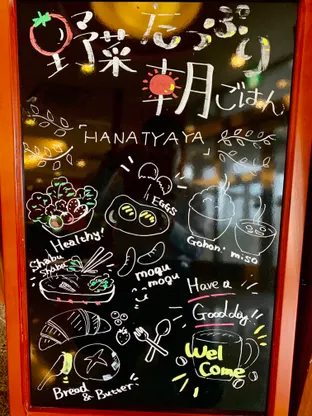 野菜たっぷり
朝ごはん
「HANATYAYA」
EGGS
Healthy!
Gohan!
miso
Shabu
Shabu
mogu
mogu
Have a
Good day!
Wel
Come
Bread
& Butter!